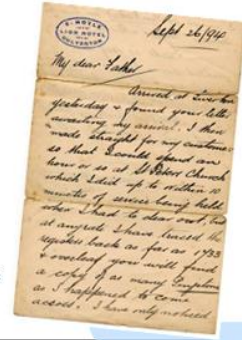 E. HOYLE
LION HOTEL
DULVERTON
Sept 26/94
My dear Father
Arrived at Tiverton
yesterday & found your letter
awaiting my arrival. I then
made straight for my customers
so that I could spend an
hour or so at St Peters Church
which I did up to within 10
minutes of service being held
when I had to clear out, but
at any rate I have traced the
registers back as far as 1733
& overleaf you will find
a copy of as many
as I happened to come
across. I have only noticed